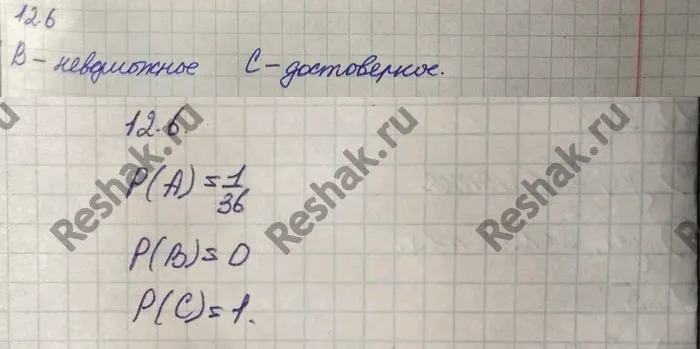 12.6
В – невозможное С – достоверное.
12.6.
P(A) = 1/36
P(B) = 0
P(C) = 1.
Reshak.ru
Reshak.ru
Reshak.ru